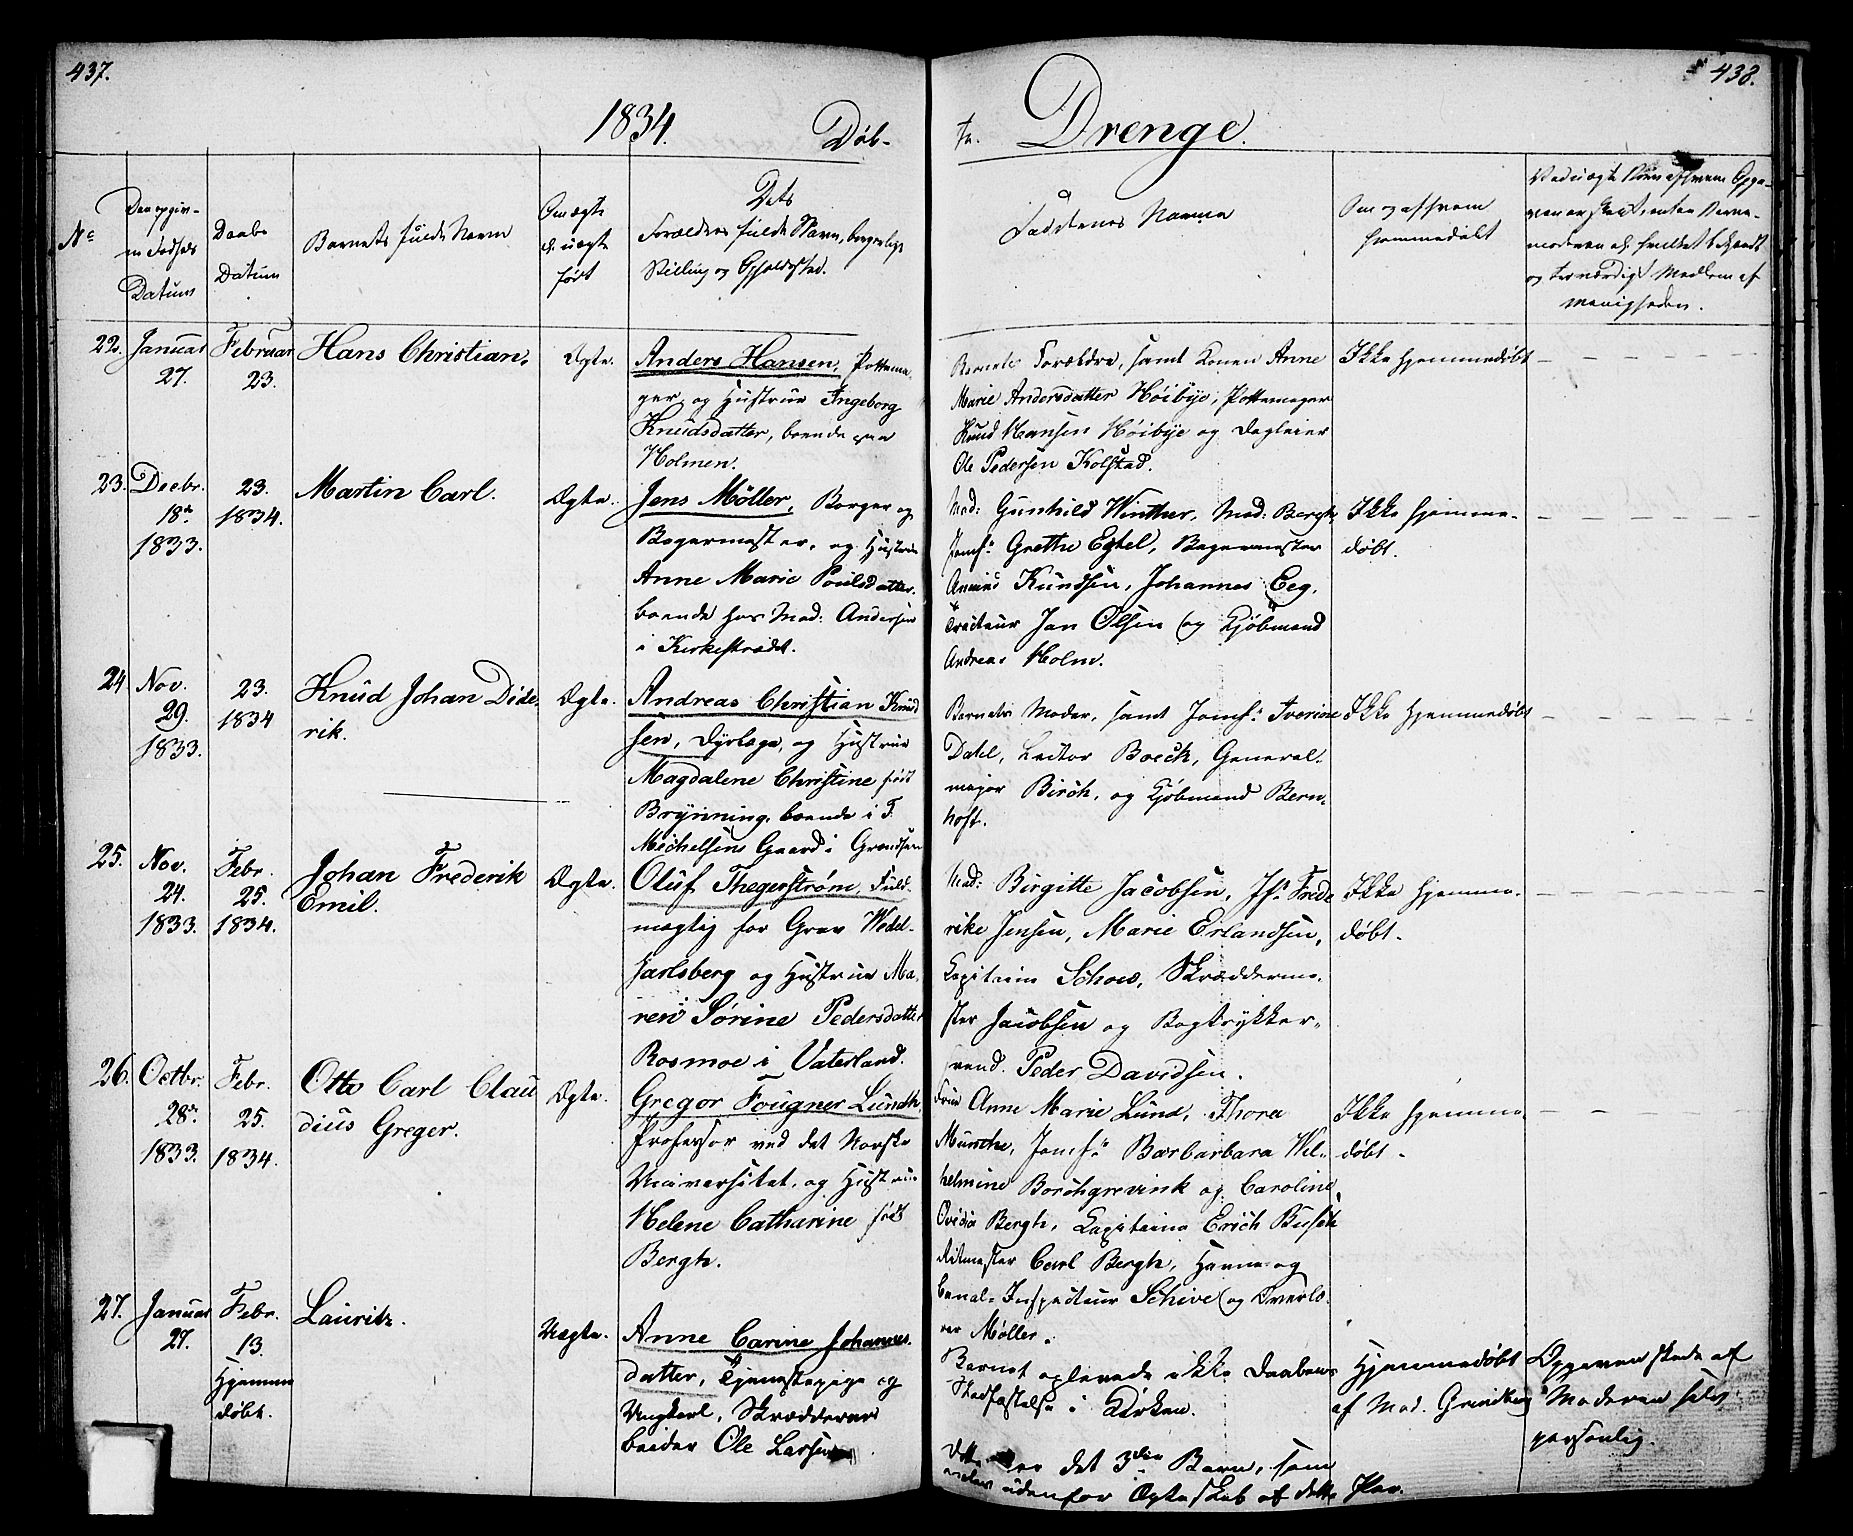 437.
438.
1834.
Døb-
te
Drenge.
No
Den opgiv-
ne Fødsels
Datum
Daabs
Datum
Barnets fulde Navn
Om ægte
el. uægte
født
Dets
Forældres fulde Navn, borgerlige
Stilling og Opholdssted.
Faddernes Navne
Om og af hvem
hjemmedøbt
Ved uægte Børn af hvem Opga-
ven er skeet, enten Barne-
moderen el. hvilket bekjendt
og troværdigt Medlem af
Menigheden.
22.
Januar
27.
Februar
23.
Hans Christian.
Ægte.
Anders Hansen, Pottema-
ger, og Hustrue Ingeborg
Knudsdatter, boende paa
Holmen.
Barnets Forældre, samt Konen Anne
Marie Andersdatter Høibye, Pottemager
Knud Hansen Høibye og Dagleier
Ole Pedersen Kolstad.
Ikke hjemmedøbt
23.
Decbr.
18de
1833.
23.
1834.
Martin Carl.
Ægte.
Jens Møller, Borger og
Bagermester, og Hustrue
Anne Marie Poulsdatter,
boende hos Mad: Andersen
i Kirkestrædet.
Mad: Gunhild Winther, Mad: Bergh,
Jomf: Grethe Egkel, Bagermester
Knudsen, Johannes Eeg,
Tracteur Jan Olsen og Kjøbmand
Andreas Holm.
Ikke hjemme-
døbt.
24
Nov.
29.
1833.
23.
1834
Knud Johan Dide-
rik.
Ægte.
Andreas Christian Knud
sen, Dyrlæge, og Hustrue
Magdalene Christine født
Brynning, boende i T.
Michelsens Gaard i Grændsen
Barnets Moder, samt Jomf: Iverine
Dahl, Lector Boeck, General-
major Birch, og Kjøbmand Bern-
hoft.
Ikke hjemmedøbt
25.
Nov.
24.
1833.
Febr.
25.
1834.
Johan Frederik
Emil.
Ægte.
Oluf Thegerstrøm, Fuld-
mægtig for Grev Wedel-
Jarlsberg og Hustrue Ma-
ren Sørine Pedersdatter
Rosmoe i Vaterland.
Mad: Birgitte Jacobsen, Jf: Frede
rike Jensen, Marie Erlandsen,
Capitain Schow, Skrædderme-
ster Jacobsen og Bogtrykker-
svend Peder Davidsen.
Ikke hjemme-
døbt.
26.
Octbr.
28de
1833.
Febr.
25.
1834.
Otto Carl Clau
dius Greger.
Ægte.
Gregor Fougner Lundh,
Professor ved det Norske
Universitet, og Hustrue
Helene Catharine født
Bergh.
Frue Anne Marie Lund, Thora
Munche, Jomf: Barbarbara Wil-
helmine Borchgrevink og Caroline
Ovidia Bergh, Capitaine Erich Busch
Ritmester Carl Bergh, Havne- og
Canal-Inspecteur Schive og Overlæ-
rer Møller.
Ikke hjemme-
døbt.
27.
Januar
27.
Febr.
13.
Hjemme
døbt.
Lauritz.
Uægte.
Anne Carine Johannes-
datter, Tjenestepige og
Ungkarl, Skrædderar
beider Ole Larsen.
Barnet oplevede ikke Daabens
Stadfæstelse i Kirken.
Dette er det 3die Barn, som
avles udenfor Ægteskab af dette Par.
Hjemmedøbt
af Mad. Grindberg
Opgaven skede af
Moderen selv
personlig.